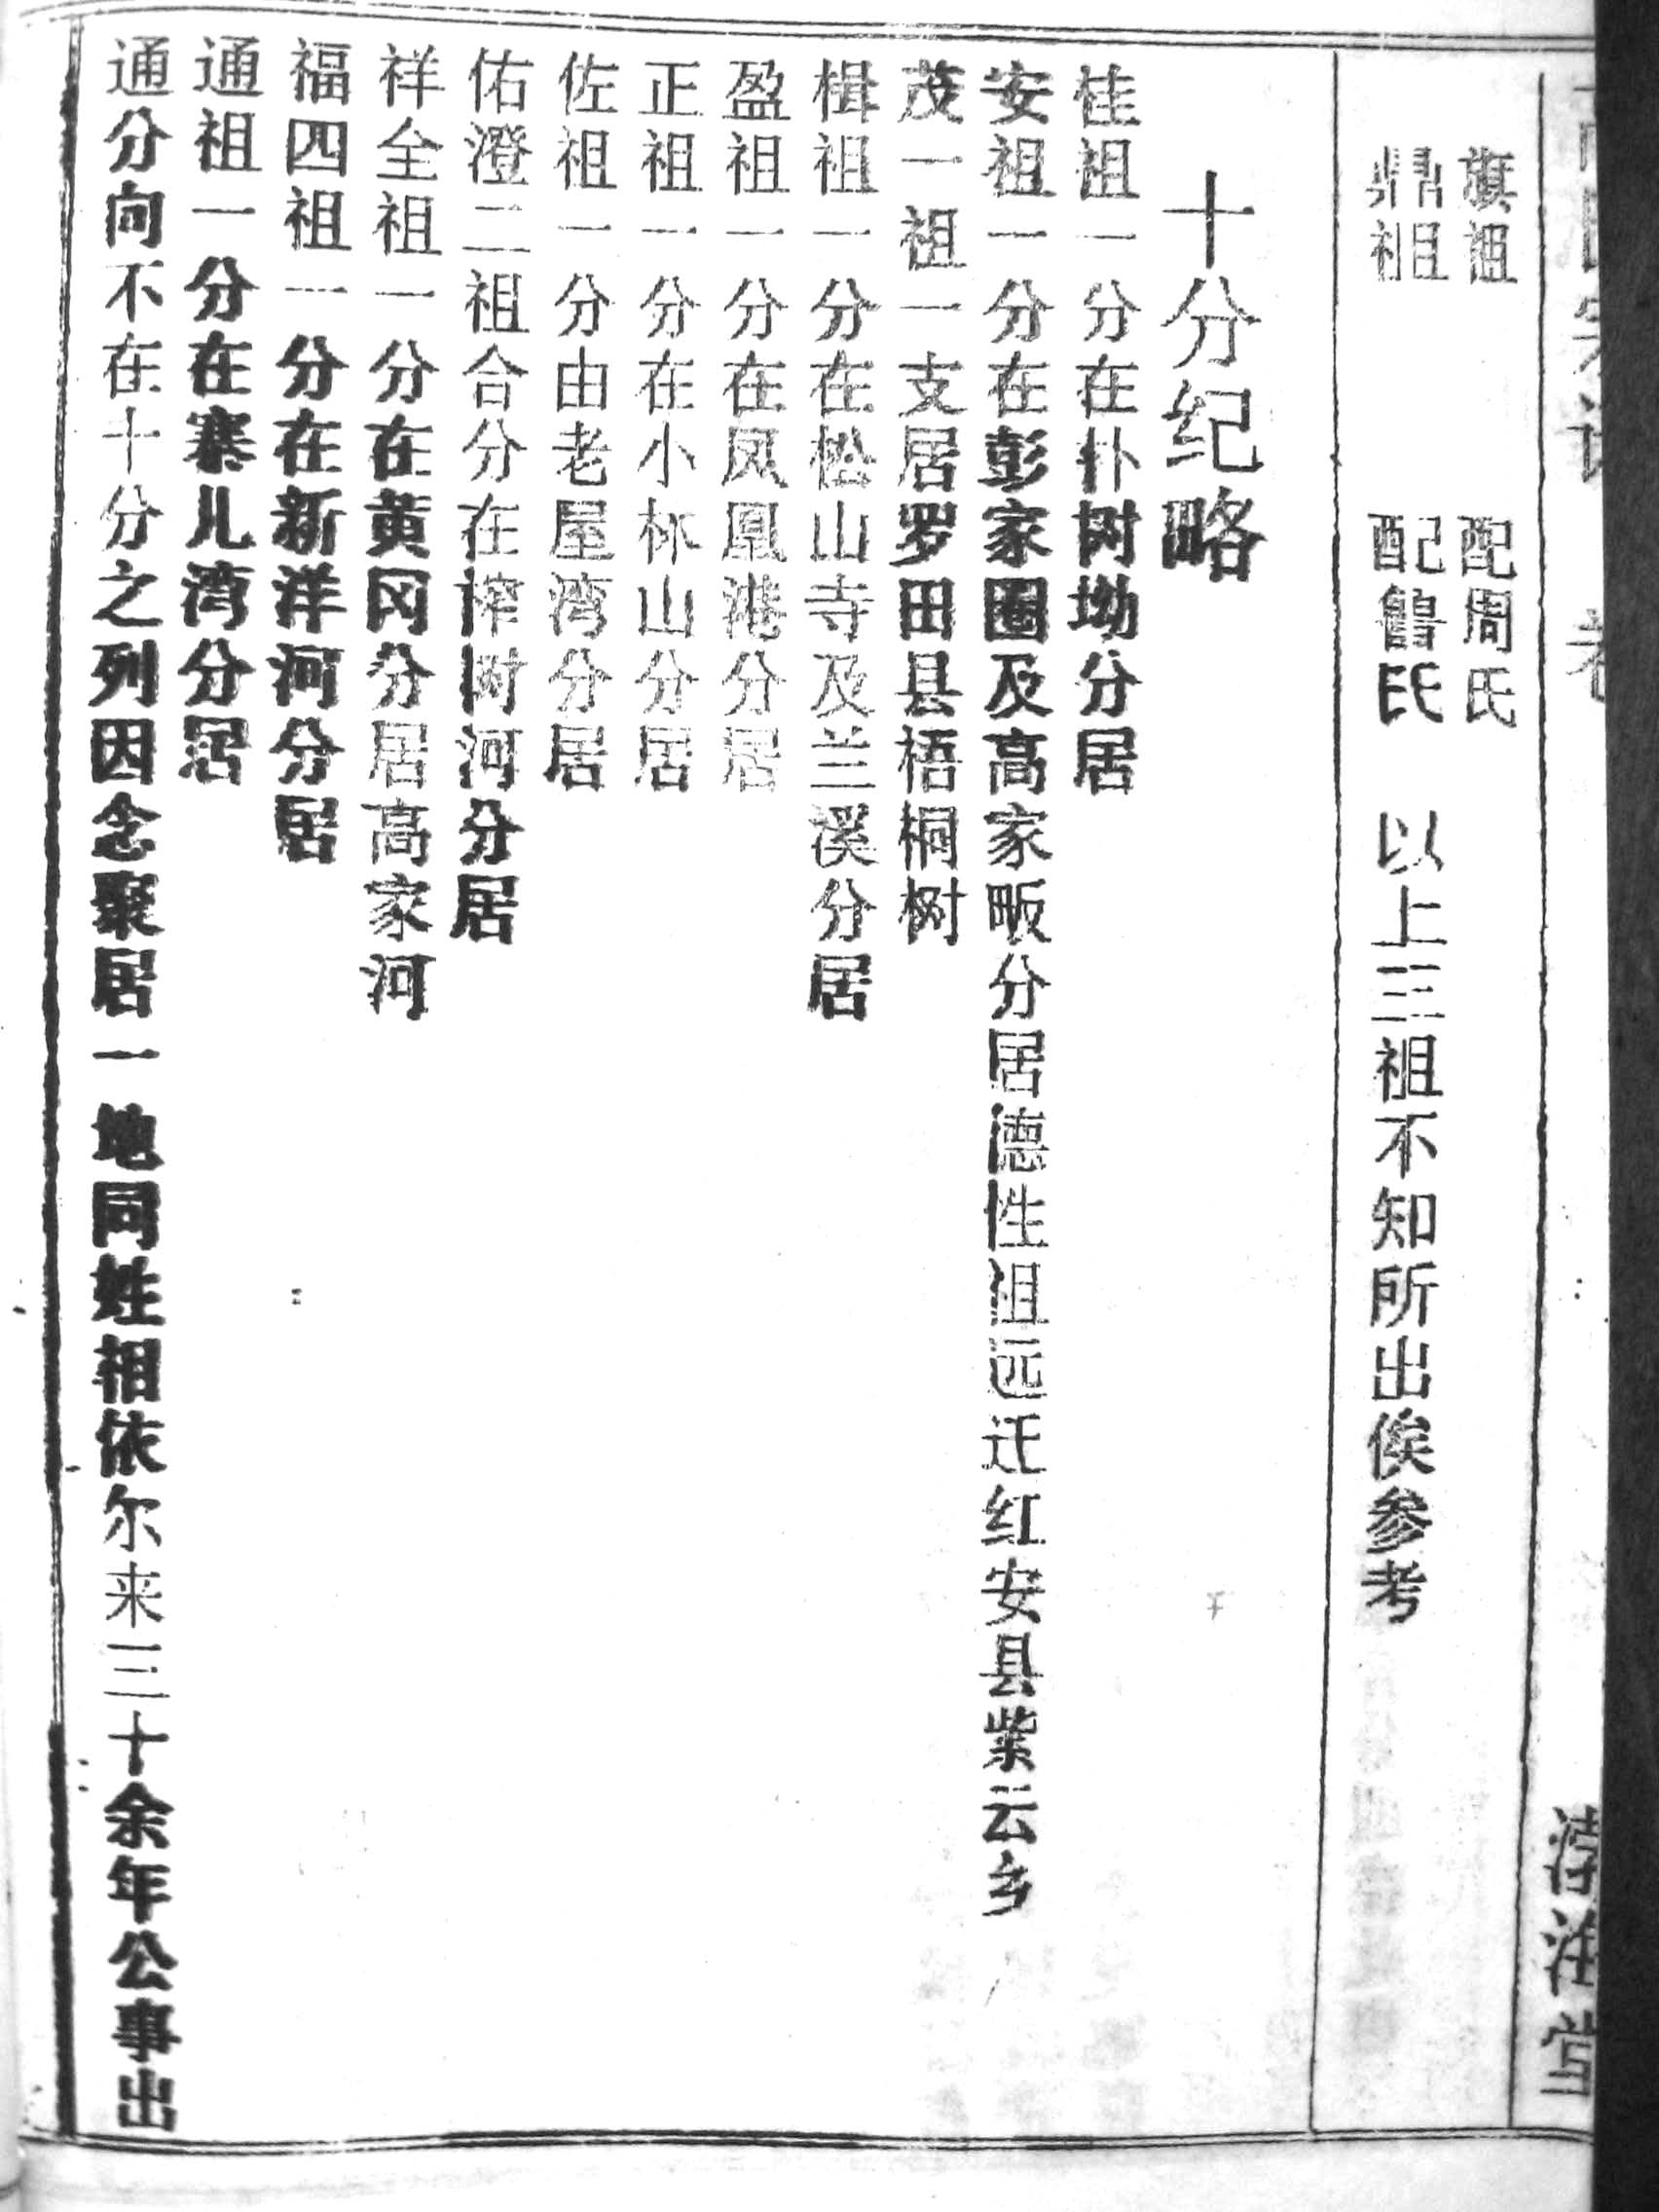 旗祖 配周氏
鼎祖 配鲁氏 以上三祖不知所出俟参考
十分纪略
桂祖一分在朴树坳分居
安祖一分在彭家圈及高家畈分居德性祖远迁红安县紫云乡
茂一祖一支居罗田县梧桐树
楫祖一分在松山寺及兰溪分居
盈祖一分在凤凰港分居
正祖一分在小林山分居
佐祖一分由老屋湾分居
佑澄二祖合分在榨树河分居
祥全祖一分在黄冈分居高家河
福四祖一分在新洋河分居
通祖一分在寨儿湾分居
通分向不在十分之列因念聚居一地同姓相依尔来三十余年公事出